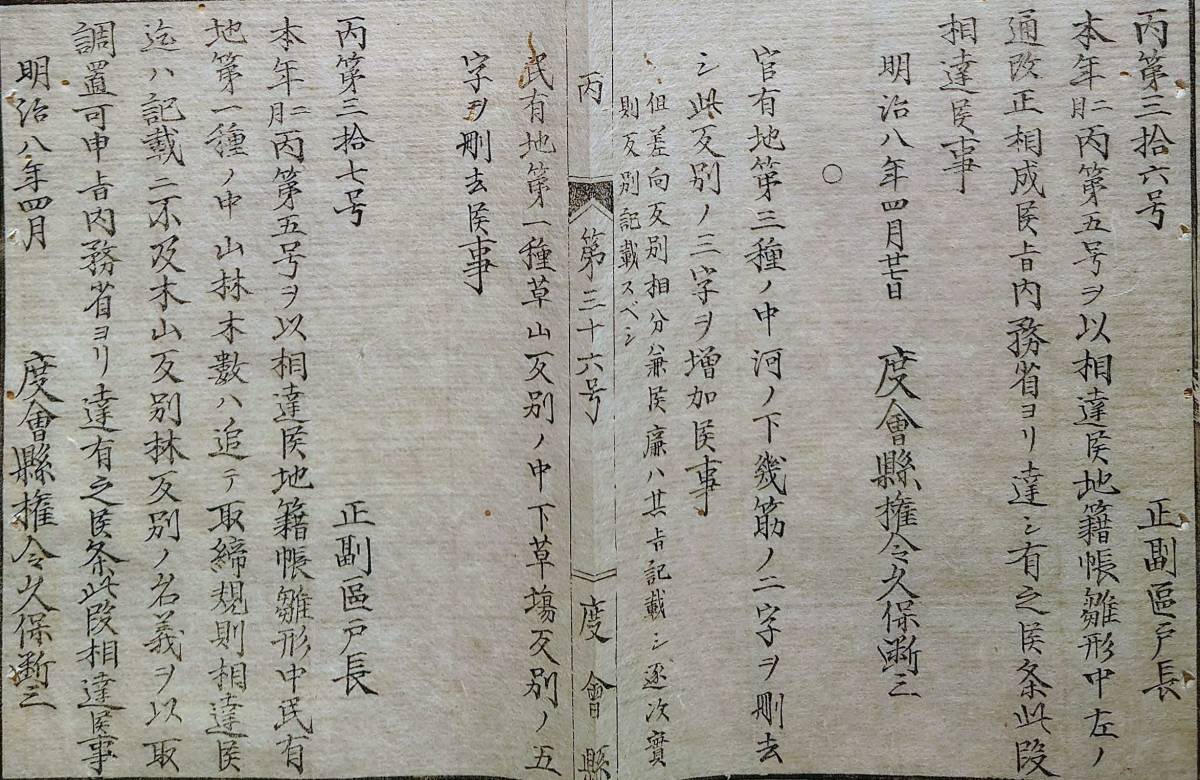 丙第三拾六号
正副區戸長
本年二月丙第五号ヲ以相達候地籍帳雛形中左ノ
通改正相成候㫖内務省ヨリ達シ有之候条此段
相達候事
明治八年四月廿七日　度會縣権令久保断三
○
官有地第三種ノ中河ノ下幾筋ノ二字ヲ刪去
シ此反別ノ三字ヲ増加候事
但差向反別相分兼候廉ハ其㫖記載シ逐次實
則反別記載スベシ
丙　第三十六号　度會縣
民有地第一種草山反別ノ中下草塲反別ノ五
字ヲ刪去候事
丙第三拾七号
正副區戸長
本年二月丙第五号ヲ以相達候地籍帳雛形中民有
地第一種ノ中山林木數ハ追テ取締規則相達候
迄ハ記載ニ不及木山反別林反別ノ名義ヲ以取
調置可申㫖内務省ヨリ達有之候条此段相達候事
明治八年四月　度會縣権令久保断三